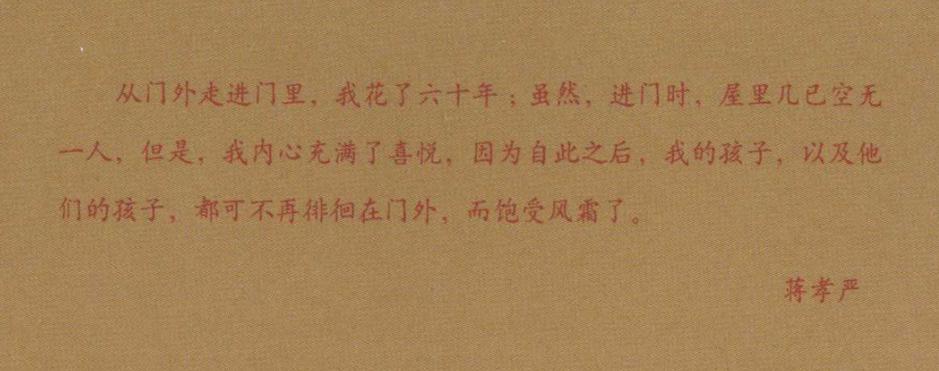 从门外走进门里，我花了六十年；虽然，进门时，屋里几已空无
一人，但是，我内心充满了喜悦，因为自此之后，我的孩子，以及他
们的孩子，都可不再徘徊在门外，而饱受风霜了。
蒋孝严